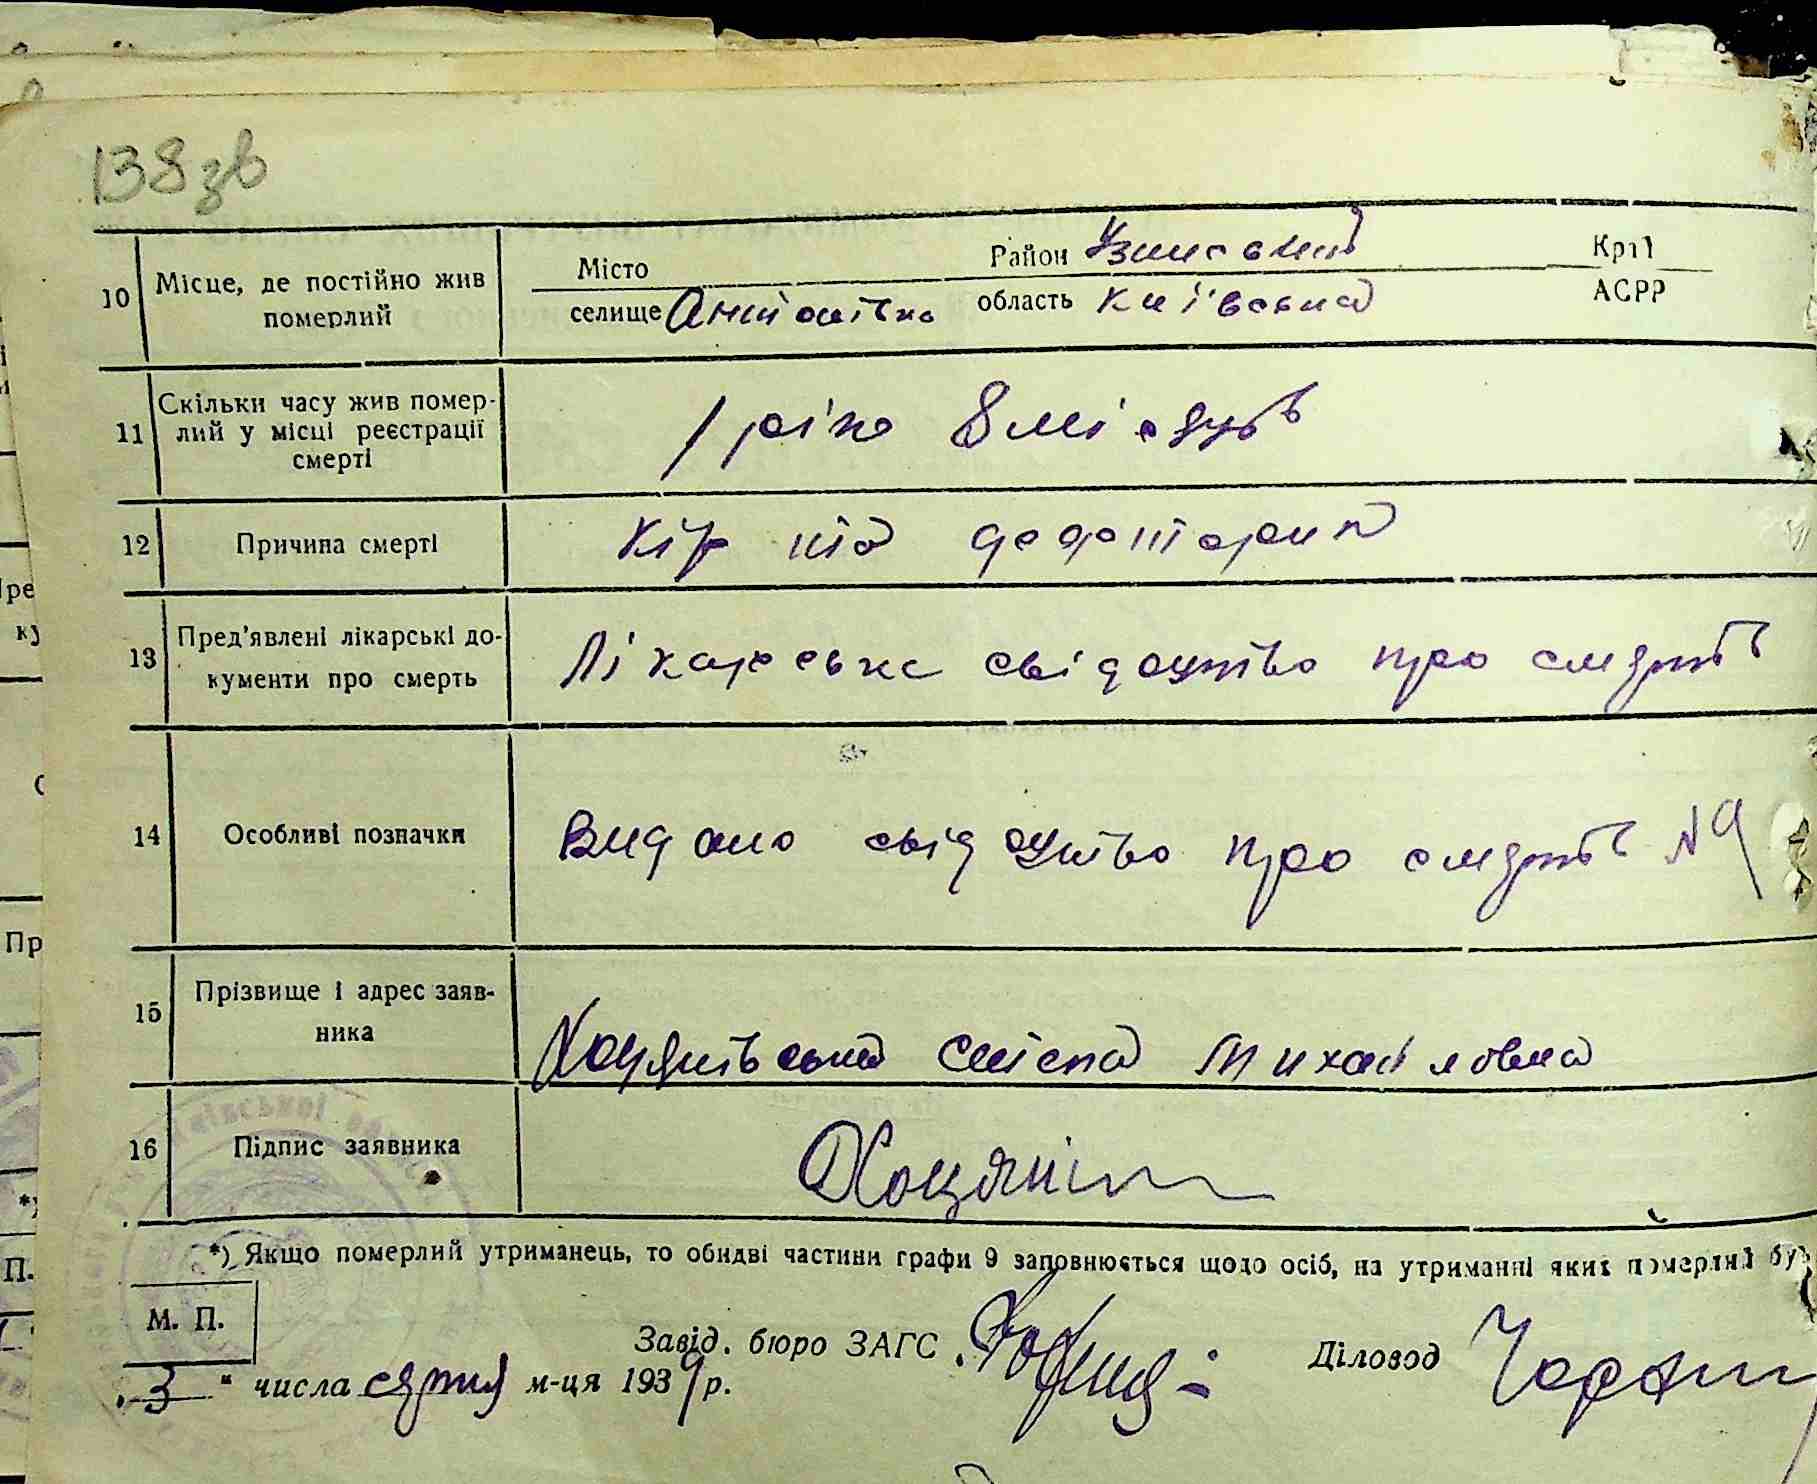 138зв
10 Місце, де постійно жив померлий Місто селище Антонівка Район Узинський область Київська АСРР
11 Скільки часу жив померлий у місці реєстрації смерті 1 рік 8 місяців
12 Причина смерті Кір
13 Пред'явлені лікарські документи про смерть Лікарське свідоцтво про смерть
14 Особливі позначки Видано свідоцтво про смерть №9
15 Прізвище і адрес заявника Михайловна
16 Підпис заявника
*) Якщо померлий утриманець, то обидві частини графи 9 заповнюється щодо осіб, на утриманні яких померлий бу
М. П.
Завід. бюро ЗАГС Діловод
"3" числа серпня м-ця 1939 р.